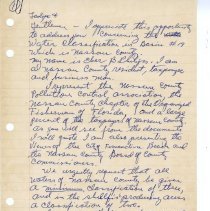 Gentlemen - I appreciate this opportunity
to address you concerning the
Water Classification in Basin #19
which is Nassau County.
My name is Cher P. Philips. I am
a Nassau County resident, taxpayer
and business man.
I represent the Nassau County
Pollution Control Association, the
Nassau County chapter of the Organized
Fishermen of Florida, and a large
percent of the taxpayers of Nassau County
as you will see from the documents
I will give. I am also presenting the
views of the City Fernandina Beach and
the Nassau County Board of County
Commissioners.
We urgently request that all
waters of Nassau County be given
a minimum classification of three,
and in the shellfish producing areas
a classification of two.